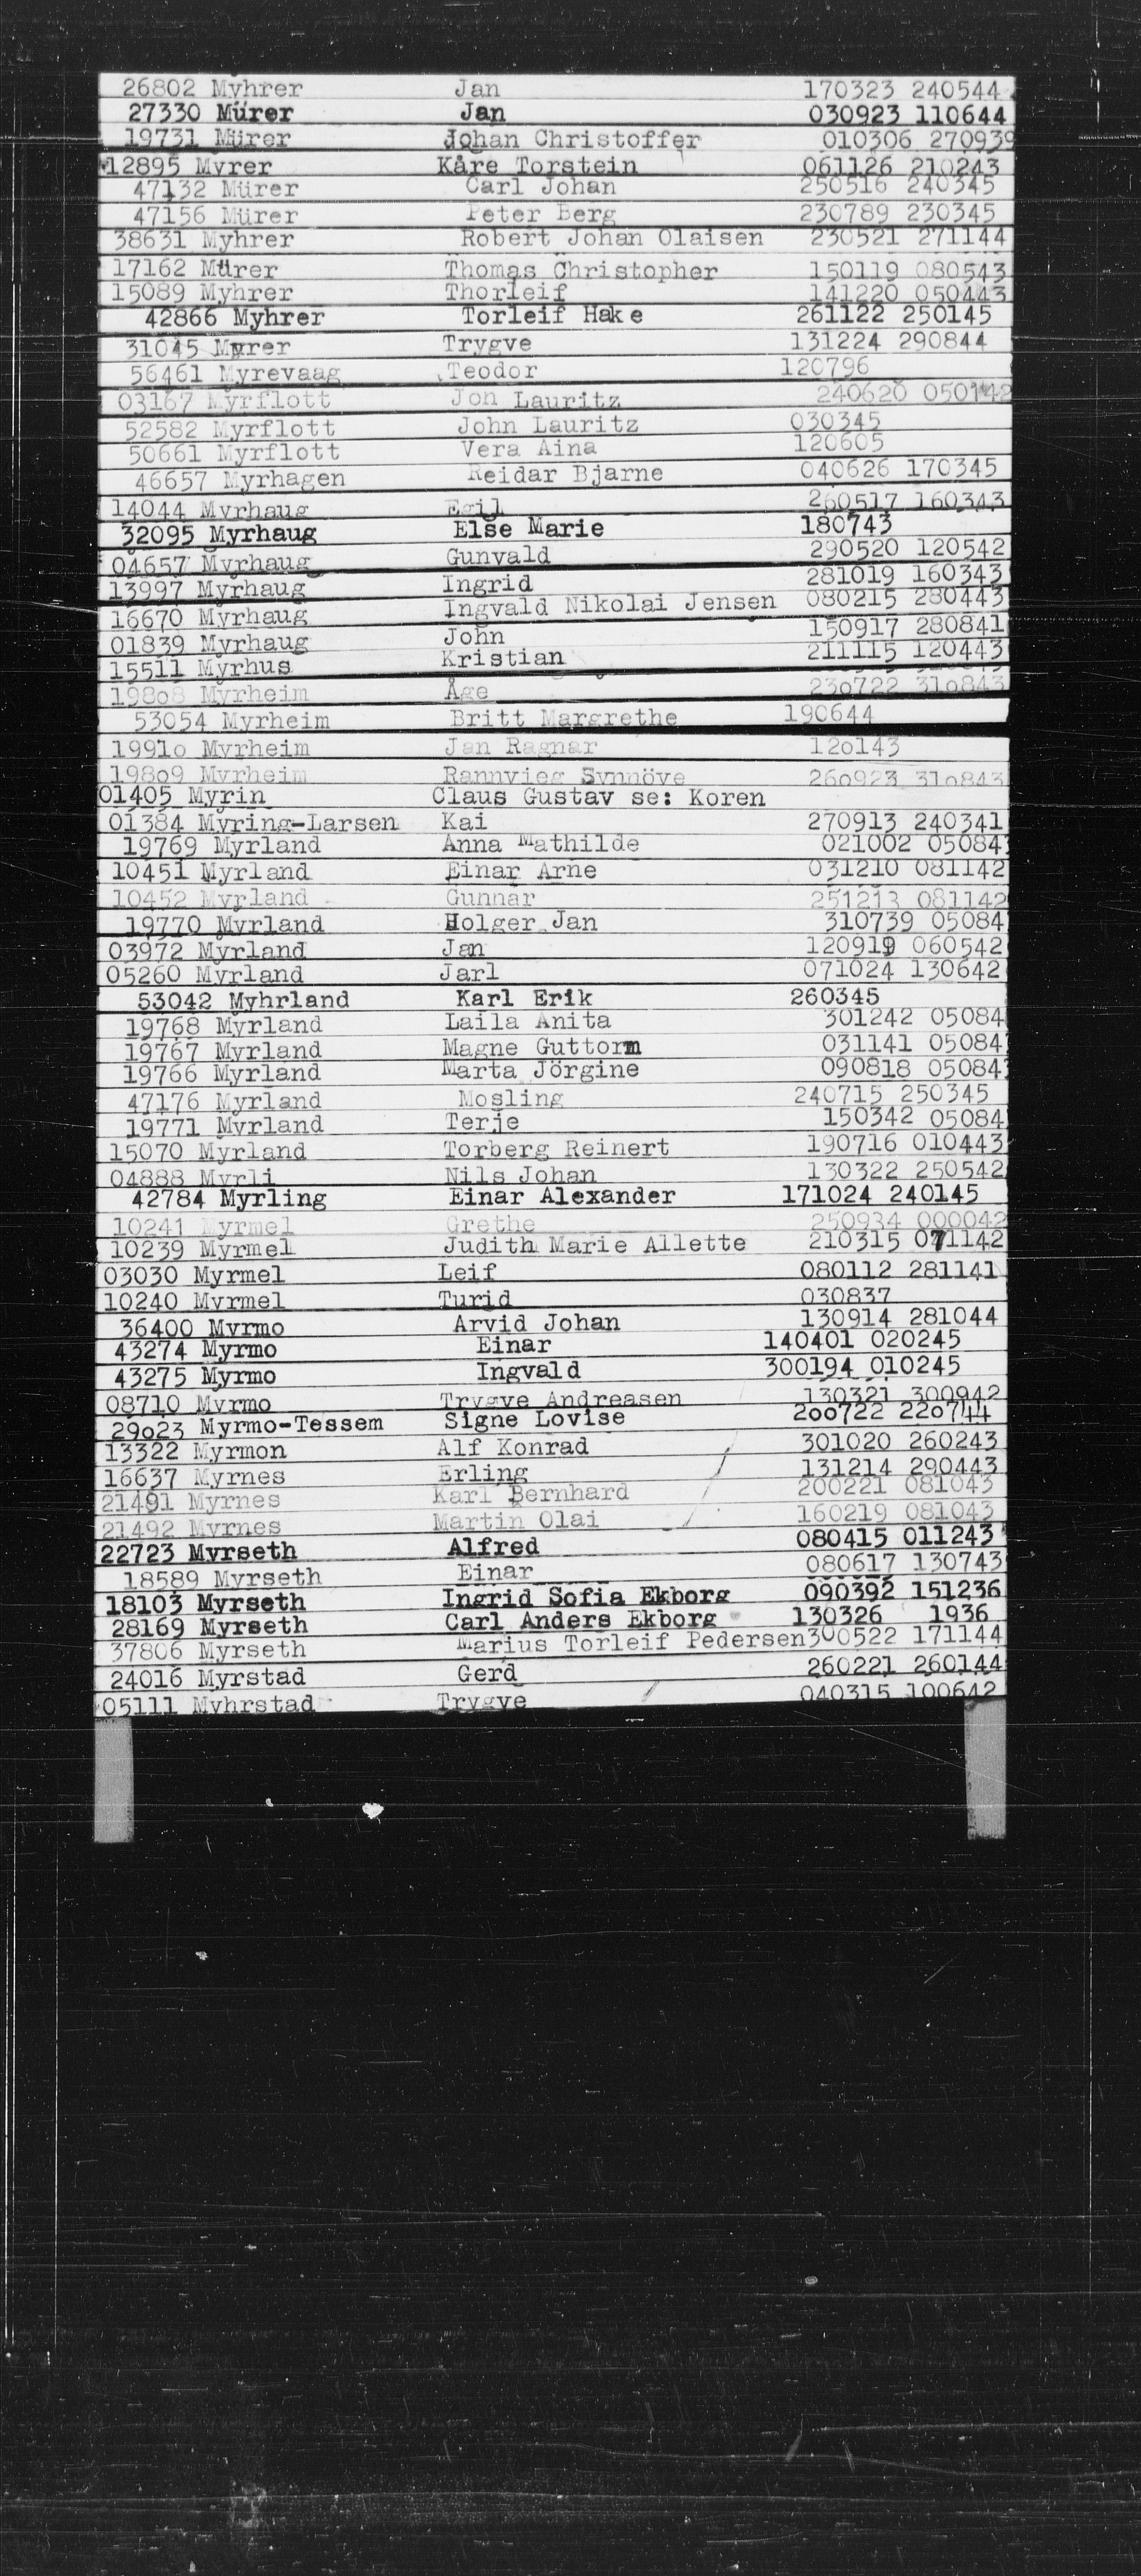 26802 Myhrer Jan 170323 240544
27330 Mürer Jan 030923 110644
19731 Mürer Johan Christoffer 010306 270939
12895 Myrer Kåre Torstein 061126 210243
47132 Mürer Carl Johan 250516 240345
47156 Mürer Peter Berg 230789 230345
38631 Myhrer Robert Johan Olaisen 230521 271144
17162 Mürer Thomas Christopher 150119 080543
15089 Myhrer Thorleif 141220 050443
42866 Myhrer Torleif Hake 261122 250145
31045 Myrer Trygve 131224 290844
56461 Myrevaag Teodor 120796
03167 Myrflott Jon Lauritz 240620 050142
52582 Myrflott John Lauritz 030345
50661 Myrflott Vera Aina 120605
46657 Myrhagen Reidar Bjarne 040626 170345
14044 Myrhaug Egil 260517 160343
32095 Myrhaug Else Marie 180743
04657 Myrhaug Gunvald 290520 120542
13997 Myrhaug Ingrid 281019 160343
16670 Myrhaug Ingvald Nikolai Jensen 080215 280443
01839 Myrhaug John 150917 280841
15511 Myrhus Kristian 211115 120443
19808 Myrheim Åge 230722 310843
53054 Myrheim Britt Margrethe 190644
19910 Myrheim Jan Ragnar 120143
19809 Myrheim Rannvieg Synnöve 260923 310843
01405 Myrin Claus Gustav se: Koren
01384 Myring-Larsen Kai 270913 240341
19769 Myrland Anna Mathilde 021002 05084
10451 Myrland Einar Arne 031210 081142
10452 Myrland Gunnar 251213 081142
19770 Myrland Holger Jan 310739 05084
03972 Myrland Jan 120919 060542
05260 Myrland Jarl 071024 130642
53042 Myhrland Karl Erik 260345
19768 Myrland Laila Anita 301242 05084
19767 Myrland Magne Guttorm 031141 05084
19766 Myrland Marta Jörgine 090818 05084
47176 Myrland Mosling 240715 250345
19771 Myrland Terje 150342 05084
15070 Myrland Torberg Reinert 190716 010443
04888 Myrli Nils Johan 130322 250542
42784 Myrling Einar Alexander 171024 240145
10241 Myrmel Grethe 250934 000042
10239 Myrmel Judith Marie Allette 210315 071142
03030 Myrmel Leif 080112 281141
10240 Myrmel Turid 030837
36400 Myrmo Arvid Johan 130914 281044
43274 Myrmo Einar 140401 020245
43275 Myrmo Ingvald 300194 010245
08710 Myrmo Trygve Andreasen 130321 300942
29023 Myrmo-Tessem Signe Lovise 200722 220744
13322 Myrmon Alf Konrad 301020 260243
16637 Myrnes Erling 131214 290443
21491 Myrnes Karl Bernhard 200221 081043
21492 Myrnes Martin Olai 160219 081043
22723 Myrseth Alfred 080415 011243
18589 Myrseth Einar 080617 130743
18103 Myrseth Ingrid Sofia Ekborg 090392 151236
28169 Myrseth Carl Anders Ekborg 130326 1936
37806 Myrseth Marius Torleif Pedersen 300522 171144
24016 Myrstad Gerd 260221 260144
05111 Myhrstad Trygve 040315 100642